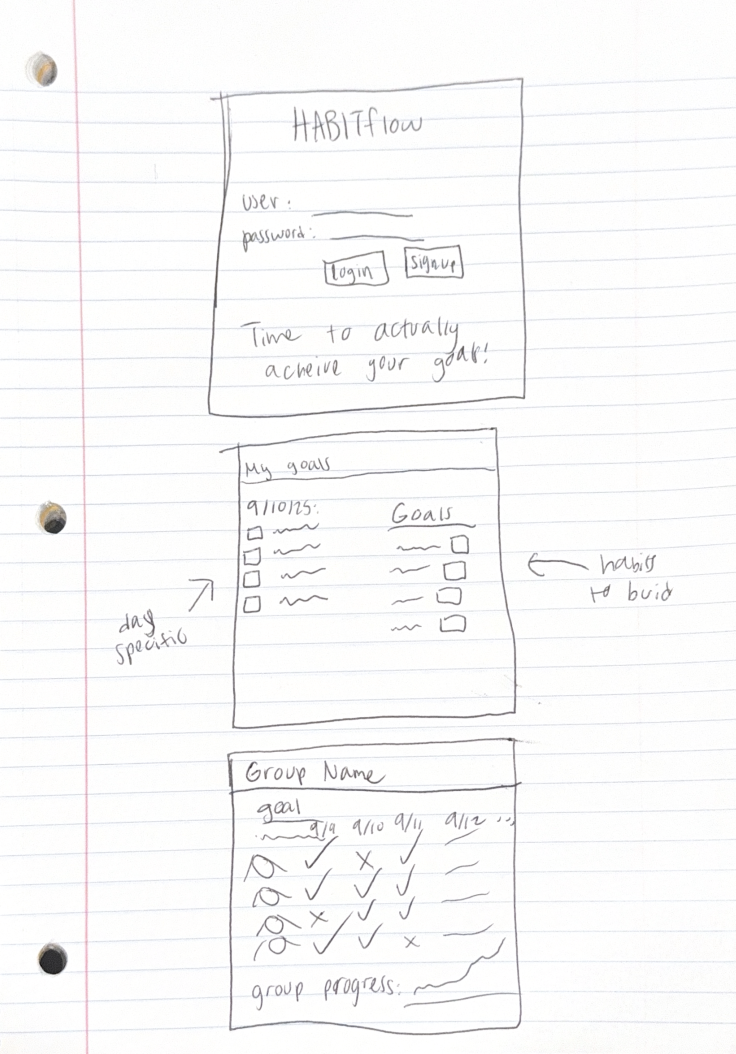 HABITflow
user:
password:
Login
Signup
Time to actually
acheive your goals!
My goals
9/10/25:
Goals
day
specific
habits
to buid
Group Name
goal
9/9 9/10 9/11 9/12 ...
group progress: